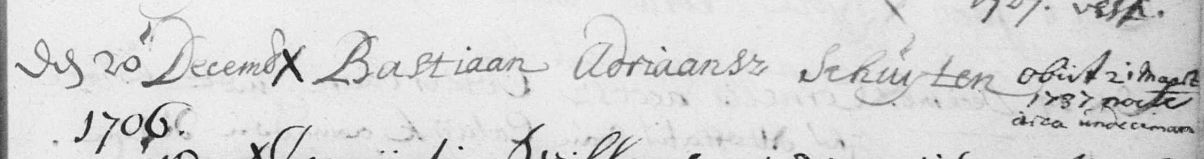 1727. vesp.
den 20 Decemb X Bastiaan Adriaansz Schuyten obiit 21 Maart
1737 nocte
circa undecimam
1706.